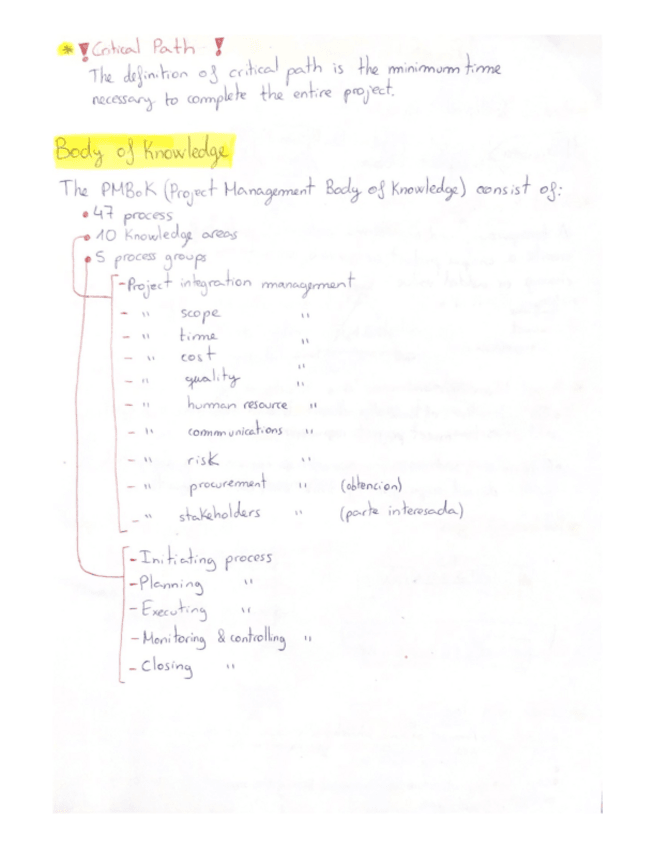 * ! Critical Path !
The definition of critical path is the minimum time
necessary to complete the entire project.
Body of Knowledge
The PMBoK (Project Management Body of Knowledge) consist of:
• 47 process
• 10 Knowledge areas
• 5 process groups
- Project integration management
- " scope "
- " time "
- " cost "
- " quality "
- " human resource "
- " communications "
- " risk "
- " procurement " (obtencion)
- " stakeholders " (parte interesada)
- Initiating process
- Planning "
- Executing "
- Monitoring & controlling "
- Closing "